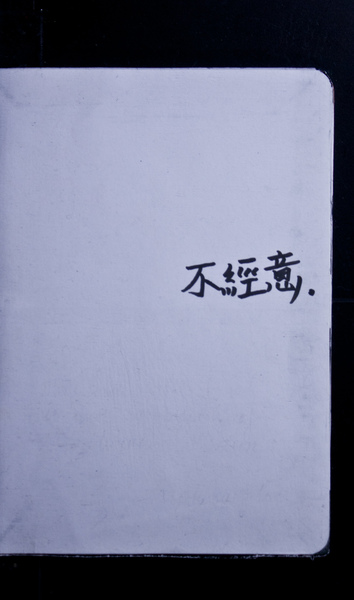 不經意.